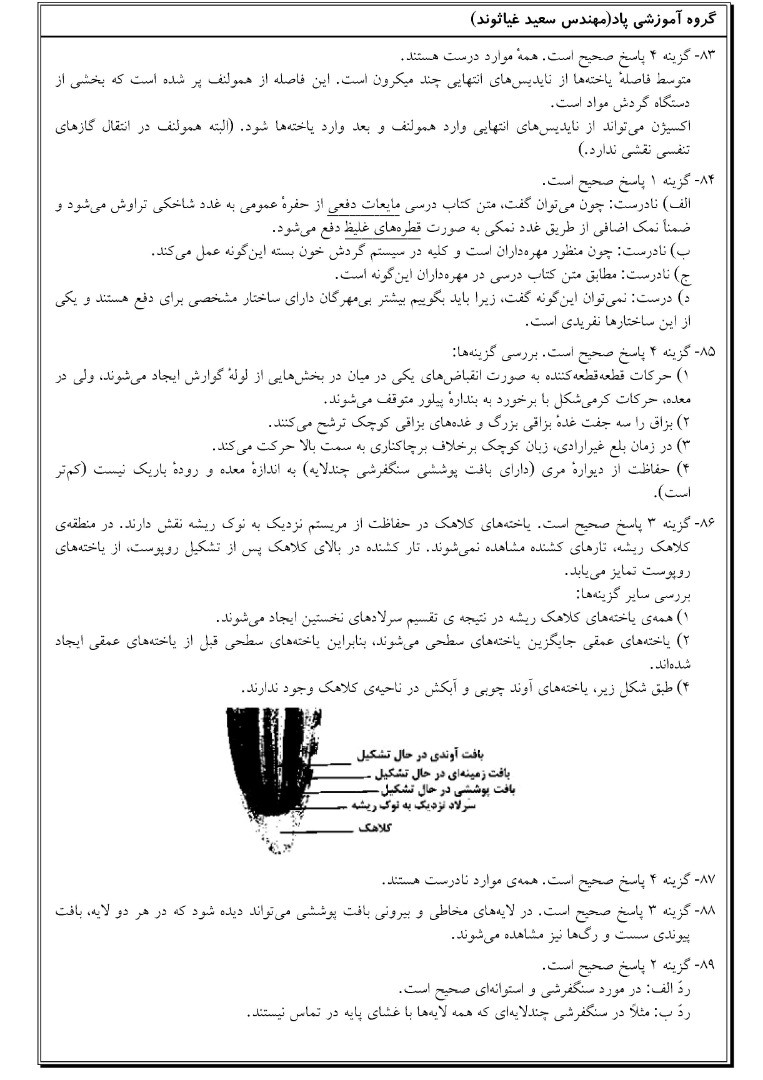 گروه آموزشی پاد(مهندس سعید غیاثوند)
۸۳- گزینه ۴ پاسخ صحیح است. همهٔ موارد درست هستند.
متوسط فاصلهٔ یاخته‌ها از نایدیس‌های انتهایی چند میکرون است. این فاصله از همولنف پر شده است که بخشی از
دستگاه گردش مواد است.
اکسیژن می‌تواند از نایدیس‌های انتهایی وارد همولنف و بعد وارد یاخته‌ها شود. (البته همولنف در انتقال گازهای
تنفسی نقشی ندارد.)
۸۴- گزینه ۱ پاسخ صحیح است.
الف) نادرست: چون می‌توان گفت، متن کتاب درسی مایعات دفعی از حفرهٔ عمومی به غدد شاخکی تراوش می‌شود و
ضمناً نمک اضافی از طریق غدد نمکی به صورت قطره‌های غلیظ دفع می‌شود.
ب) نادرست: چون منظور مهره‌داران است و کلیه در سیستم گردش خون بسته این‌گونه عمل می‌کند.
ج) نادرست: مطابق متن کتاب درسی در مهره‌داران این‌گونه است.
د) درست: نمی‌توان این‌گونه گفت، زیرا باید بگوییم بیشتر بی‌مهرگان دارای ساختار مشخصی برای دفع هستند و یکی
از این ساختارها نفریدی است.
۸۵- گزینه ۴ پاسخ صحیح است. بررسی گزینه‌ها:
۱) حرکات قطعه‌قطعه‌کننده به صورت انقباض‌های یکی در میان در بخش‌هایی از لولهٔ گوارش ایجاد می‌شوند، ولی در
معده، حرکات کرمی‌شکل با برخورد به بندارهٔ پیلور متوقف می‌شوند.
۲) بزاق را سه جفت غدهٔ بزاقی بزرگ و غده‌های بزاقی کوچک ترشح می‌کنند.
۳) در زمان بلع غیرارادی، زبان کوچک برخلاف برچاکناری به سمت بالا حرکت می‌کند.
۴) حفاظت از دیوارهٔ مری (دارای بافت پوششی سنگفرشی چندلایه) به اندازهٔ معده و رودهٔ باریک نیست (کم‌تر
است).
۸۶- گزینه ۳ پاسخ صحیح است. یاخته‌های کلاهک در حفاظت از مریستم نزدیک به نوک ریشه نقش دارند. در منطقه‌ی
کلاهک ریشه، تارهای کشنده مشاهده نمی‌شوند. تار کشنده در بالای کلاهک پس از تشکیل روپوست، از یاخته‌های
روپوست تمایز می‌یابد.
بررسی سایر گزینه‌ها:
۱) همه‌ی یاخته‌های کلاهک ریشه در نتیجه ی تقسیم سرلادهای نخستین ایجاد می‌شوند.
۲) یاخته‌های عمقی جایگزین یاخته‌های سطحی می‌شوند، بنابراین یاخته‌های سطحی قبل از یاخته‌های عمقی ایجاد
شده‌اند.
۴) طبق شکل زیر، یاخته‌های آوند چوبی و آبکش در ناحیه‌ی کلاهک وجود ندارند.
بافت آوندی در حال تشکیل
بافت زمینه‌ای در حال تشکیل
بافت پوششی در حال تشکیل
سرلاد نزدیک به نوک ریشه
کلاهک
۸۷- گزینه ۴ پاسخ صحیح است. همه‌ی موارد نادرست هستند.
۸۸- گزینه ۳ پاسخ صحیح است. در لایه‌های مخاطی و بیرونی بافت پوششی می‌تواند دیده شود که در هر دو لایه، بافت
پیوندی سست و رگ‌ها نیز مشاهده می‌شوند.
۸۹- گزینه ۲ پاسخ صحیح است.
ردّ الف: در مورد سنگفرشی و استوانه‌ای صحیح است.
ردّ ب: مثلاً در سنگفرشی چندلایه‌ای که همه لایه‌ها با غشای پایه در تماس نیستند.